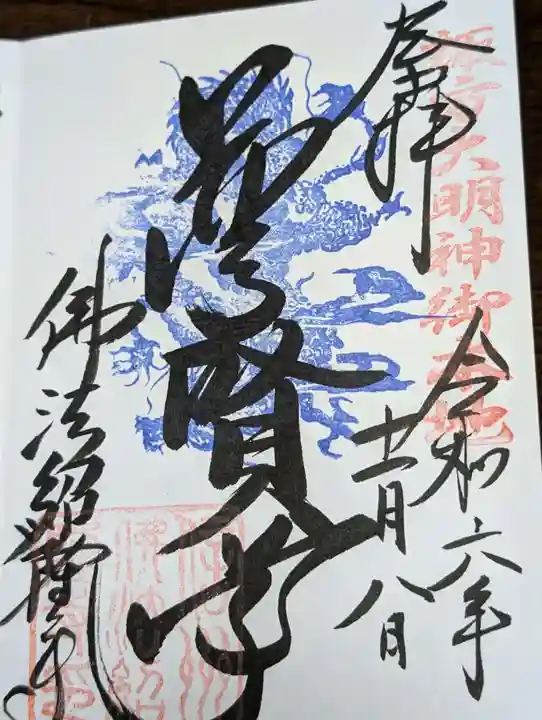 諏方大明神御本地
奉拝
令和六年
十一月八日
普賢尊
佛法紹隆寺